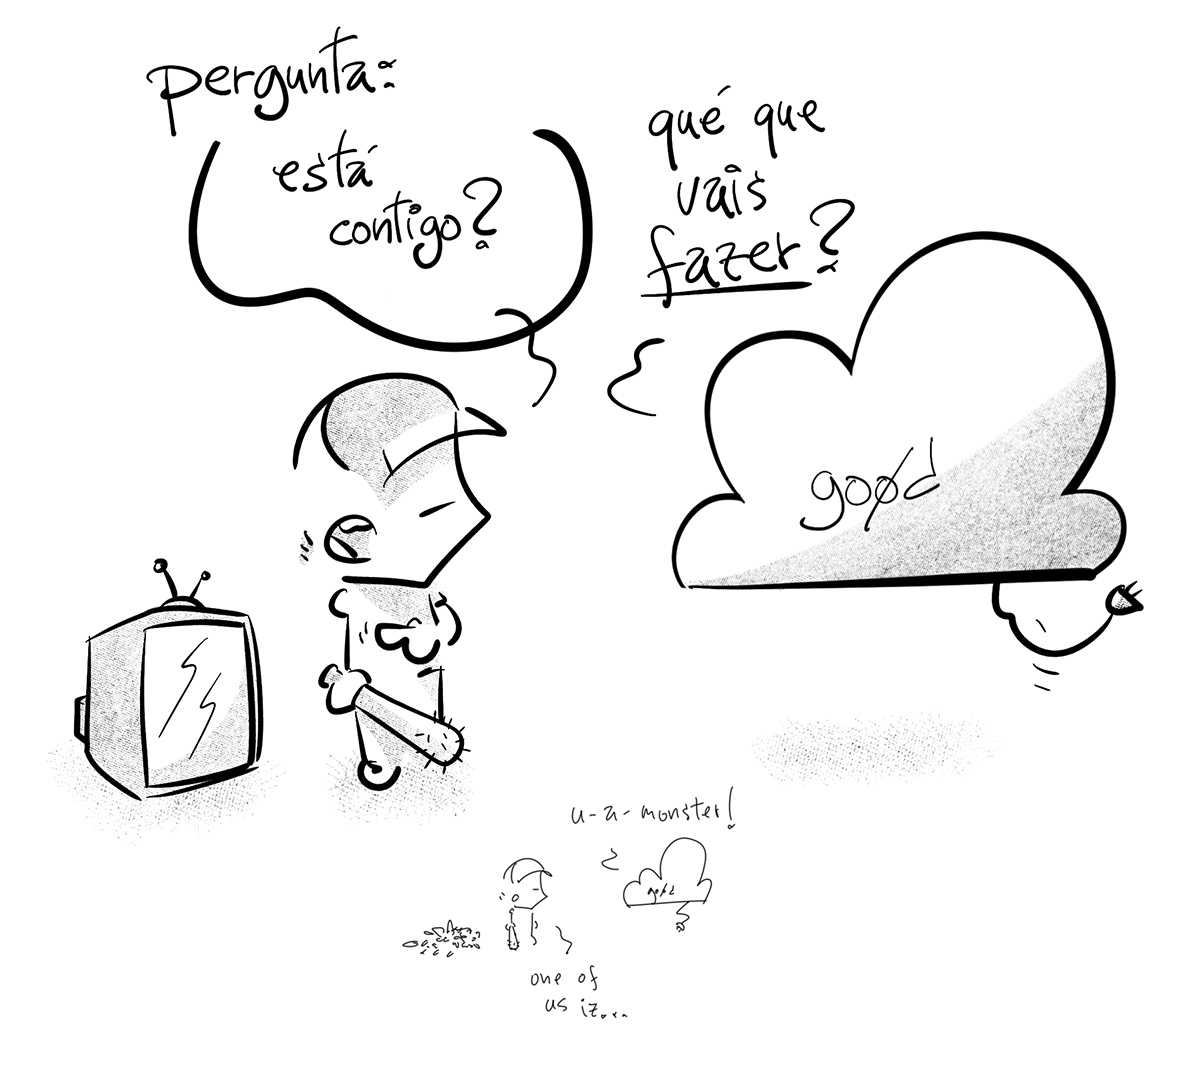 pergunta:
está
contigo?
qué que
vais
fazer?
goød
u-a-monster!
goød
one of
us iz...